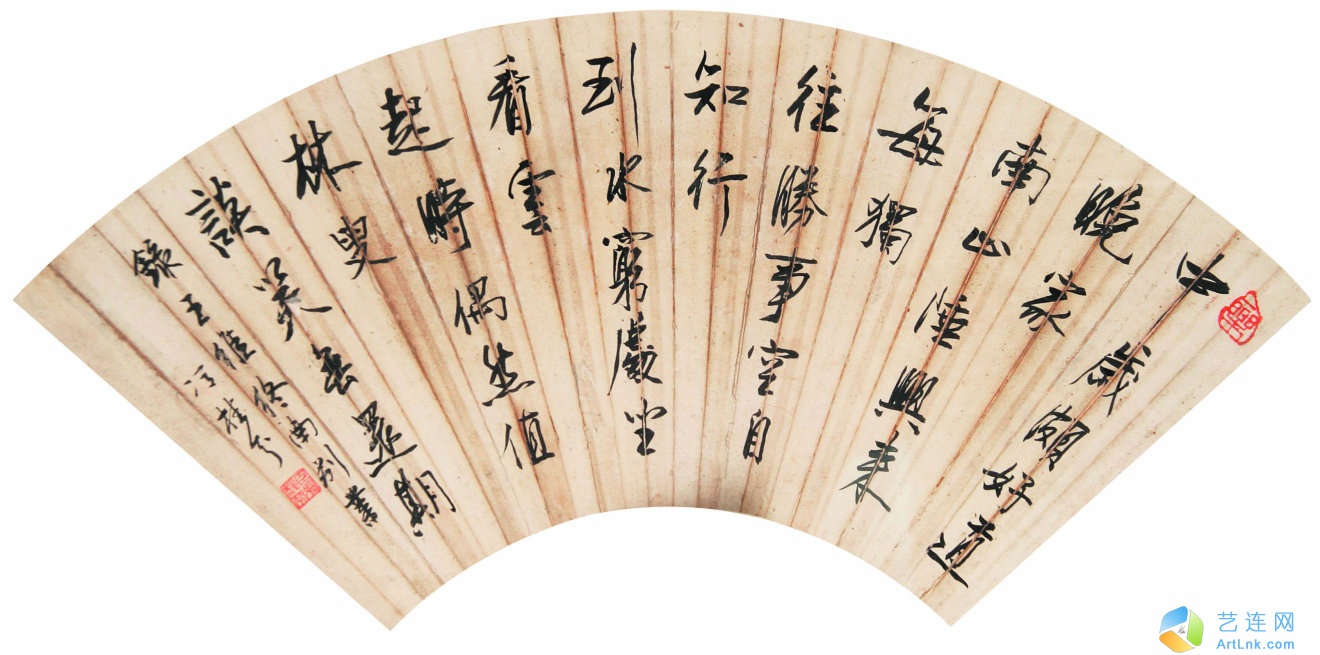 中歲頗好道
晚家
南山陲興來
每獨
往勝事空自
知行
到水窮處坐
看雲
起時偶然值
林叟
談笑無還期
錄王維終南別業
艺连网
ArtLnk.com